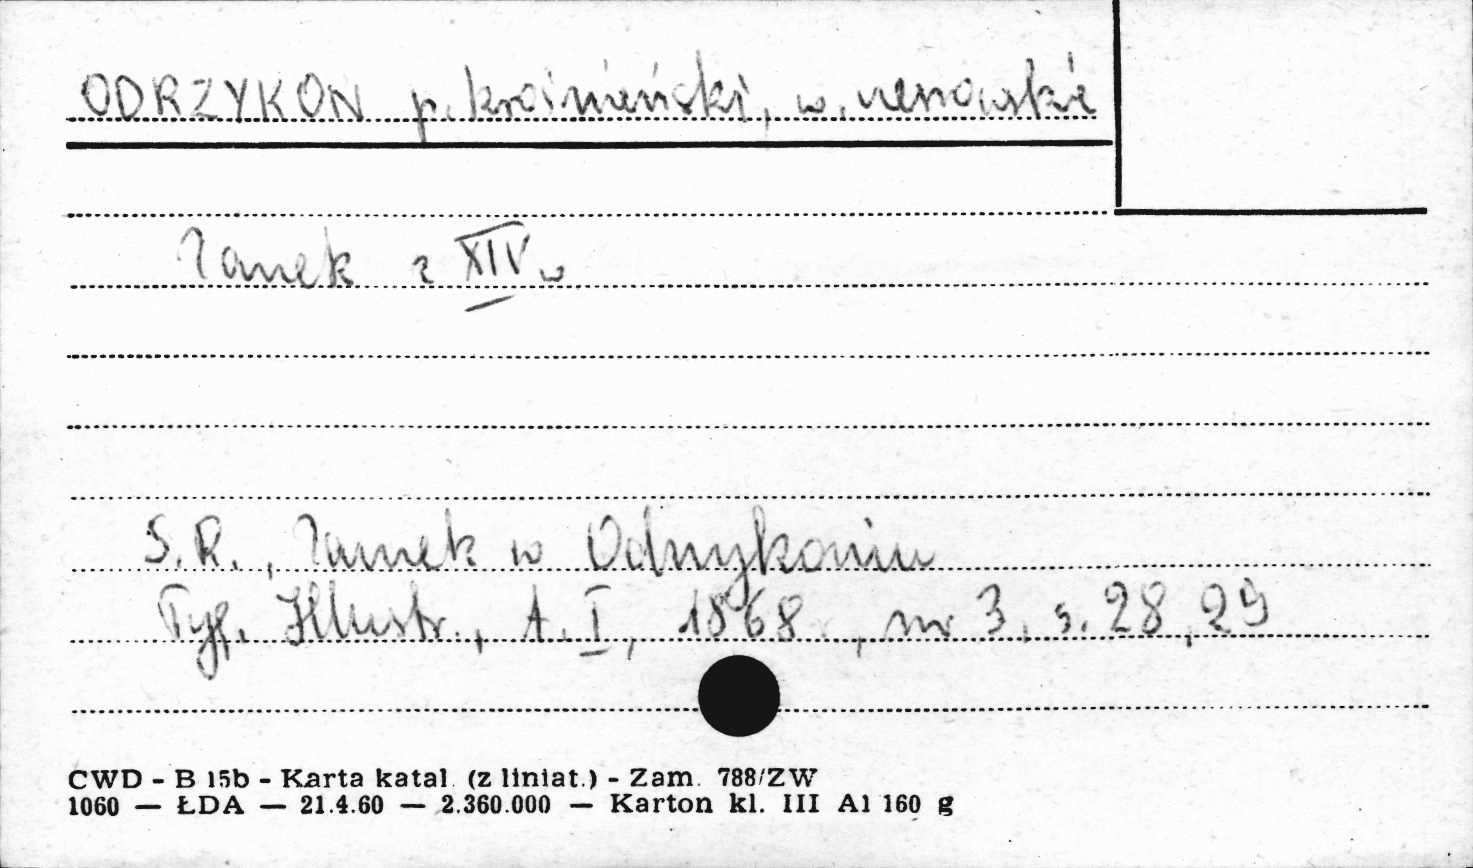 ODRZYKOŃ p. krośnieński, w. rzeszowskie
Zamek z XIV w
S.R., Zamek w Odrzykoniu
Tyg. Illustr., t. I, 1868, nr 3, s. 28, 29
CWD - B 15b - Karta katal. (z liniat.) - Zam. 788/ZW
1060 — ŁDA — 21.4.60 — 2.360.000 — Karton kl. III A1 160 g